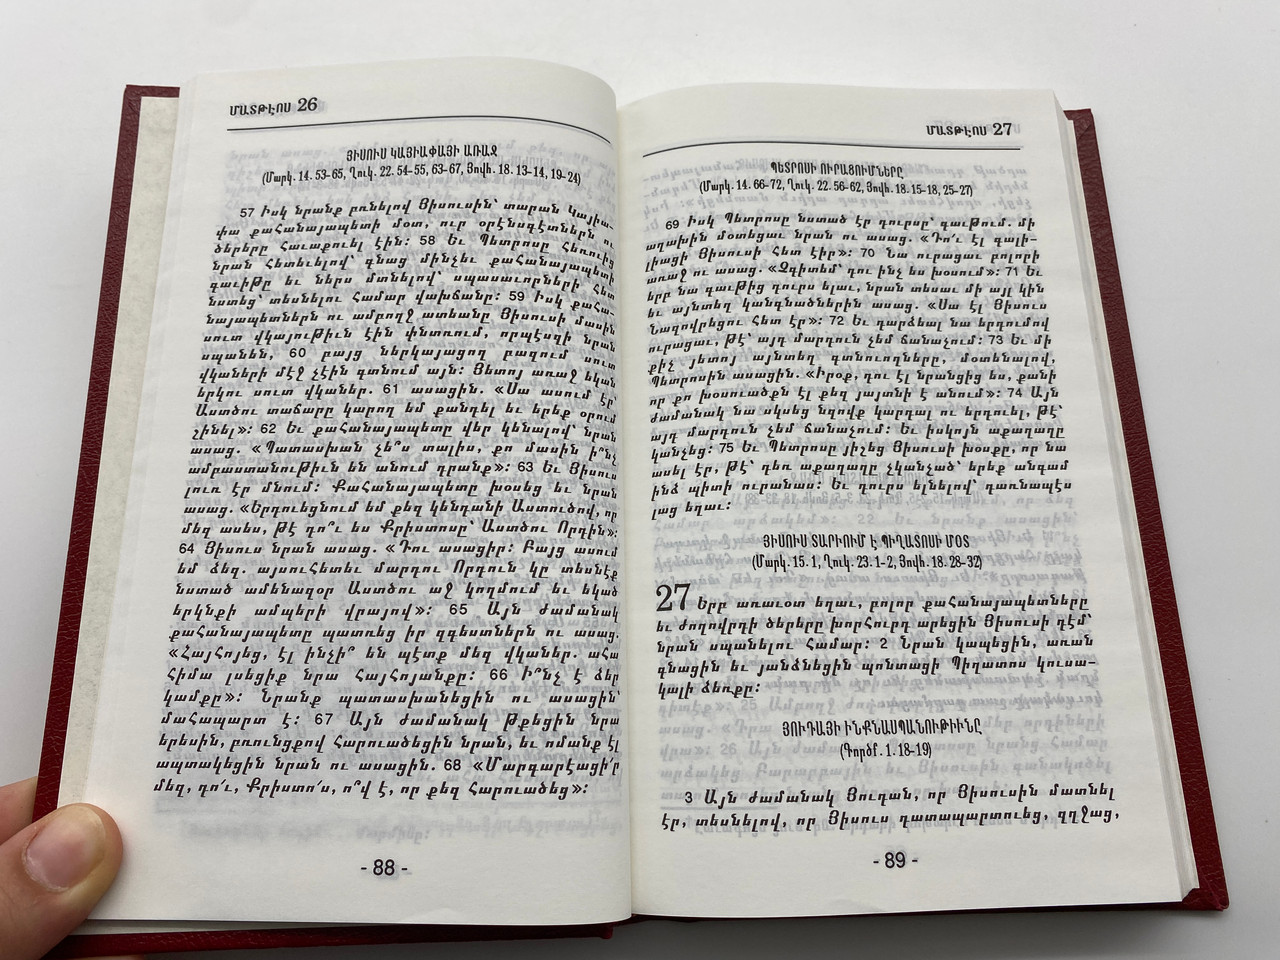 ՄԱՏԹԷՈՍ 26
ՅԻՍՈՒՍ ԿԱՅԻԱՓԱՅԻ ԱՌԱՋ
(Մարկ. 14. 53-65, Ղուկ. 22. 54-55, 63-67, Յովհ. 18. 13-14, 19-24)
57 Իսկ նրանք բռնելով Յիսուսին՝ տարան Կայիա-
փա քահանայապետի մօտ, ուր օրէնսգէտներն ու
ծերերը հաւաքուել էին: 58 Եւ Պետրոսը հեռուից
նրան հետեւելով՝ գնաց մինչեւ քահանայապետի
գաւիթը եւ ներս մտնելով՝ սպասաւորների հետ
նստեց՝ տեսնելու համար վախճանը: 59 Իսկ քահա-
նայապետներն ու ամբողջ ատեանը Յիսուսի մասին
սուտ վկայութիւն էին փնտռում, որպէսզի նրան
սպանեն, 60 բայց ներկայացող բազում սուտ
վկաների մէջ չէին գտնում այն: Յետոյ առաջ եկան
երկու սուտ վկաներ. 61 ասացին. «Սա ասում էր՝
Աստծու տաճարը կարող եմ քանդել եւ երեք օրում
շինել»: 62 Եւ քահանայապետը վեր կենալով՝ նրան
ասաց. «Պատասխան չե՞ս տալիս, քո մասին ի՞նչ
ամբաստանութիւն են անում դրանք»: 63 Եւ Յիսուս
լուռ էր մնում: Քահանայապետը խօսեց եւ նրան
ասաց. «Երդուեցնում եմ քեզ կենդանի Աստուծով, որ
մեզ ասես, թէ դո՞ւ ես Քրիստոսը՝ Աստծու Որդին»:
64 Յիսուս նրան ասաց. «Դու ասացիր: Բայց ասում
եմ ձեզ. այսուհետեւ մարդու Որդուն կը տեսնէք
նստած ամենազօր Աստծու աջ կողմում եւ եկած
երկնքի ամպերի վրայով»: 65 Այն ժամանակ
քահանայապետը պատռեց իր զգեստներն ու ասաց.
«Հայհոյեց, էլ ինչի՞ են պէտք մեզ վկաներ. ահա
հիմա լսեցիք նրա հայհոյանքը: 66 Ի՞նչ է ձեր
կամքը»: Նրանք պատասխանեցին ու ասացին՝
մահապարտ է: 67 Այն ժամանակ թքեցին նրա
երեսին, բռունցքով հարուածեցին նրան, եւ ոմանք էլ
ապտակեցին նրան ու ասացին. 68 «Մարգարէացի՛ր
մեզ, դո՛ւ, Քրիստո՛ս, ո՞վ է, որ քեզ հարուածեց»:
- 88 -
ՄԱՏԹԷՈՍ 27
ՊԵՏՐՈՍԻ ՈՒՐԱՑՈՒՄՆԵՐԸ
(Մարկ. 14. 66-72, Ղուկ. 22. 56-62, Յովհ. 18. 15-18, 25-27)
69 Իսկ Պետրոսը նստած էր դուրսը՝ գաւթում. մի
աղախին մօտեցաւ նրան ու ասաց. «Դո՛ւ էլ գալի-
լիացի Յիսուսի հետ էիր»: 70 Նա ուրացաւ բոլորի
առաջ ու ասաց. «Չգիտեմ՝ դու ինչ ես խօսում»: 71 Եւ
երբ նա գաւթից դուրս ելաւ, նրան տեսաւ մի այլ կին
եւ այնտեղ կանգնածներին ասաց. «Սա էլ Յիսուս
Նազովրեցու հետ էր»: 72 Եւ դարձեալ նա երդումով
ուրացաւ, թէ՝ այդ մարդուն չեմ ճանաչում: 73 Եւ մի
քիչ յետոյ այնտեղ գտնուողները, մօտենալով,
Պետրոսին ասացին. «Իրօք, դու էլ նրանցից ես, քանի
որ քո խօսուածքն էլ քեզ յայտնի է անում»: 74 Այն
ժամանակ նա սկսեց նզովք կարդալ ու երդուել, թէ՝
այդ մարդուն չեմ ճանաչում: Եւ իսկոյն աքաղաղը
կանչեց: 75 Եւ Պետրոսը յիշեց Յիսուսի խօսքը, որ նա
ասել էր, թէ՝ դեռ աքաղաղը չկանչած՝ երեք անգամ
ինձ պիտի ուրանաս: Եւ դուրս ելնելով՝ դառնապէս
լաց եղաւ:
ՅԻՍՈՒՍ ՏԱՐՒՈՒՄ Է ՊԻՂԱՏՈՍԻ ՄՕՏ
(Մարկ. 15. 1, Ղուկ. 23. 1-2, Յովհ. 18. 28-32)
27 Երբ առաւօտ եղաւ, բոլոր քահանայապետները
եւ ժողովրդի ծերերը խորհուրդ արեցին Յիսուսի դէմ՝
նրան սպանելու համար: 2 Նրան կապեցին, առան
գնացին եւ յանձնեցին պոնտացի Պիղատոս կուսա-
կալի ձեռքը:
ՅՈՒԴԱՅԻ ԻՆՔՆԱՍՊԱՆՈՒԹԻՒՆԸ
(Գործք. 1. 18-19)
3 Այն ժամանակ Յուդան, որ Յիսուսին մատնել
էր, տեսնելով, որ Յիսուս դատապարտուեց, զղջաց,
- 89 -